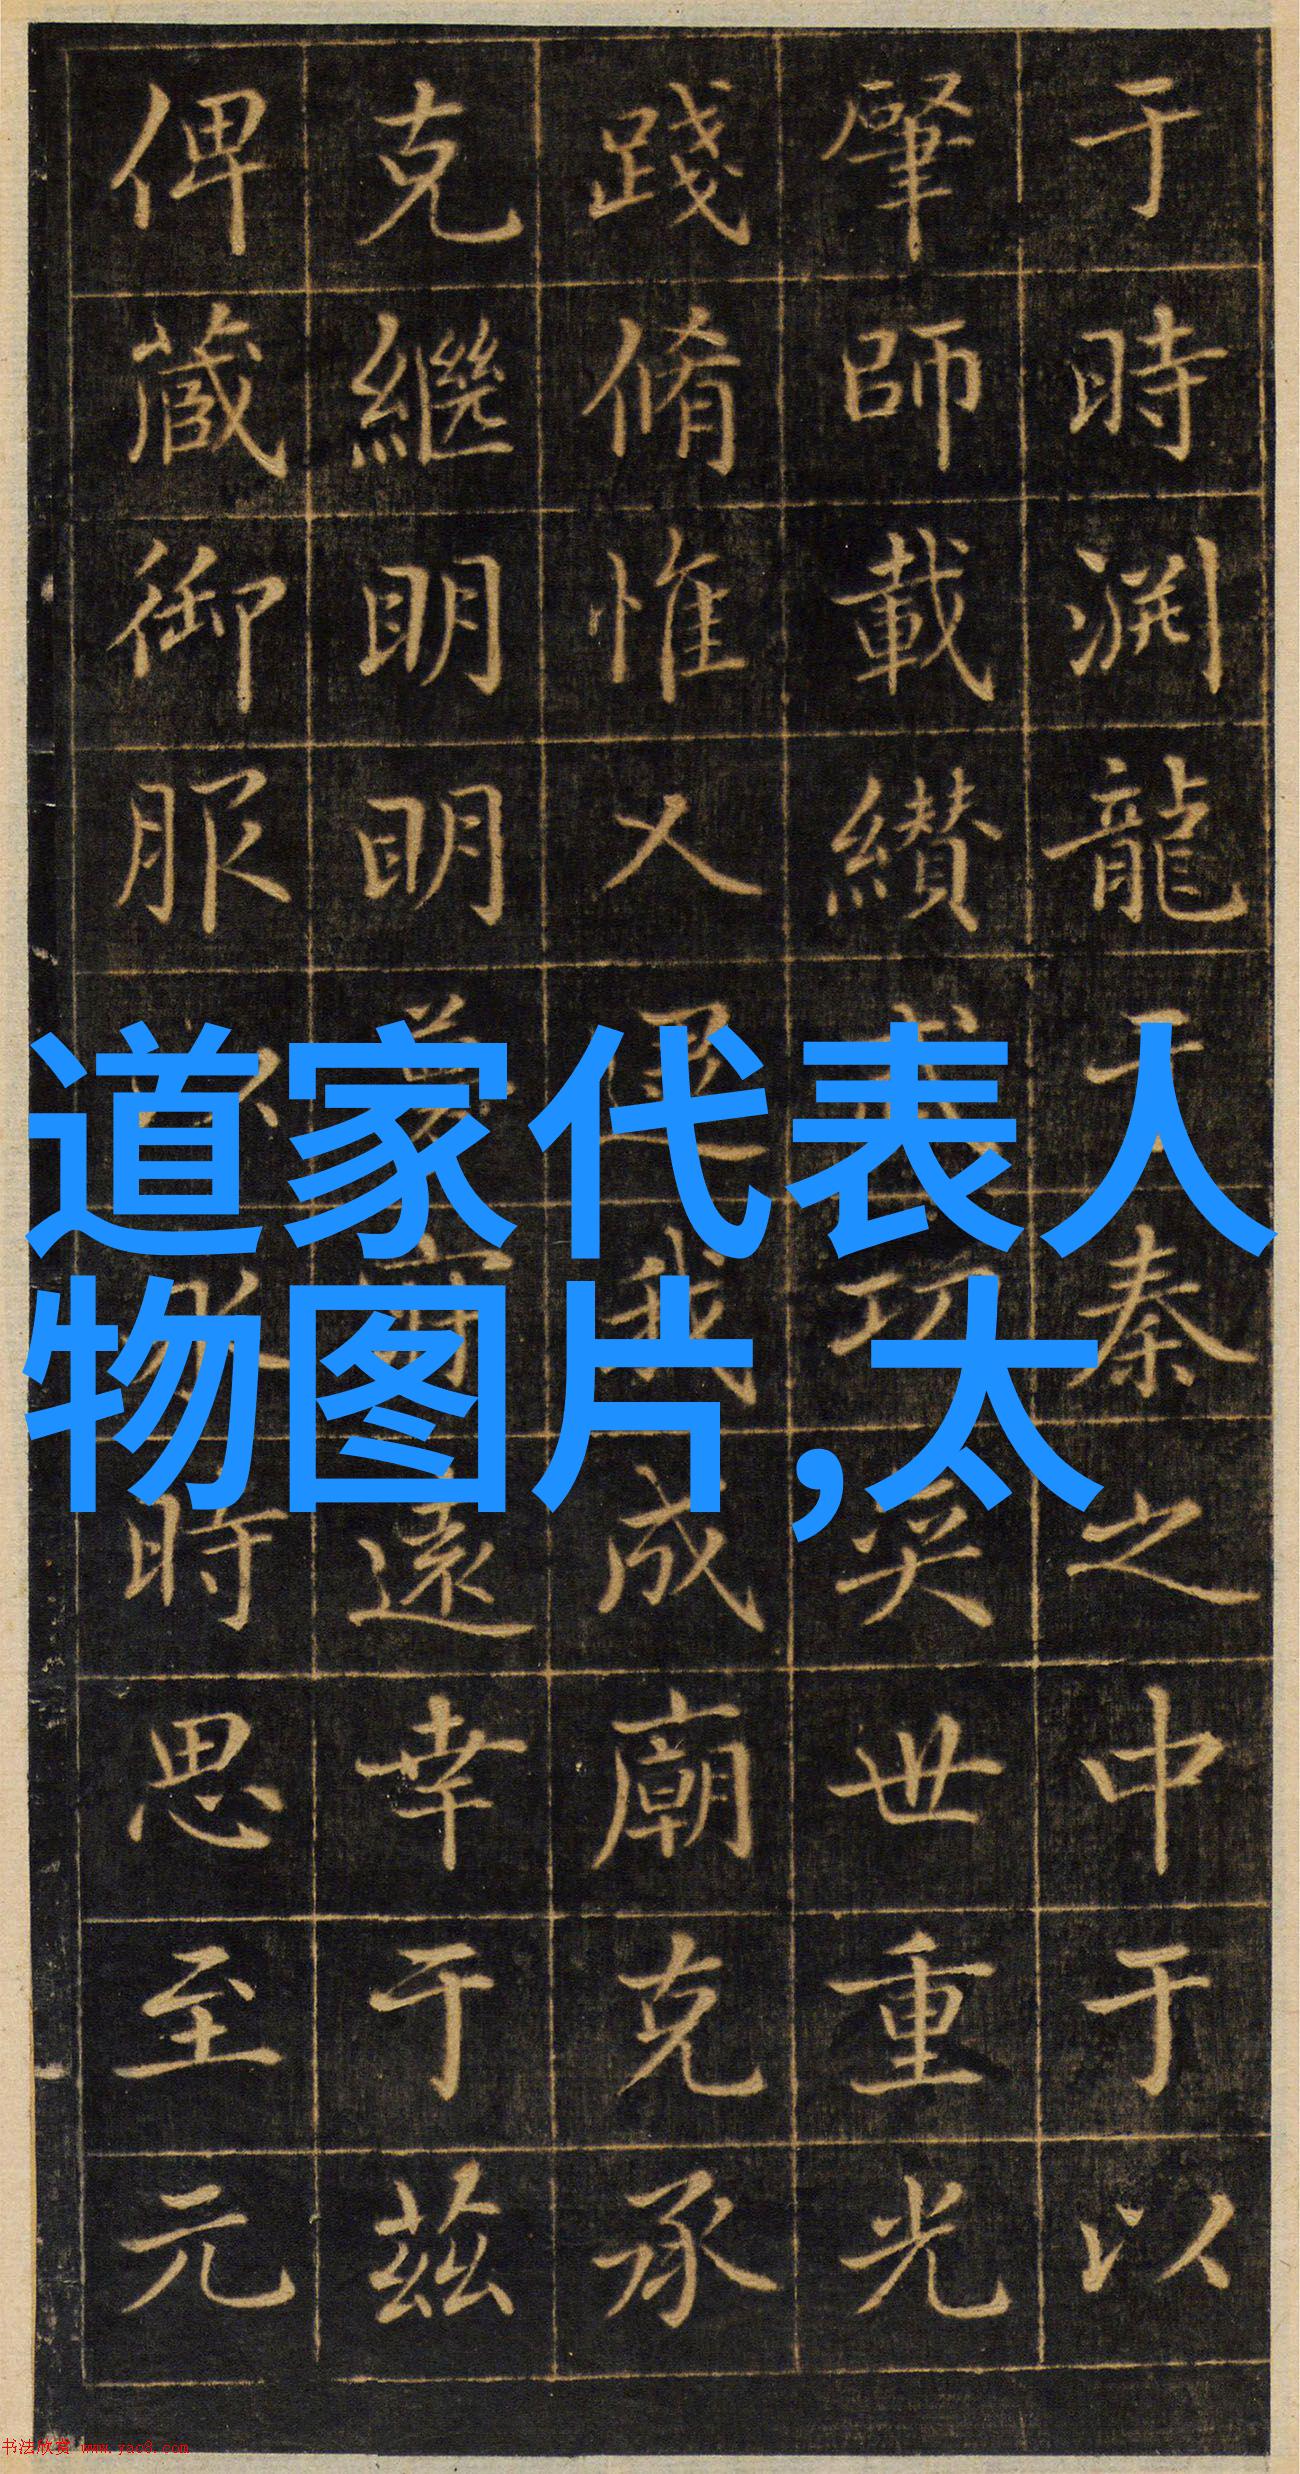 于時渕龍于秦之中于以
肇師載纘功奕世重光
踐脩惟人我成廟克承
克繼明明遠幸于茲
俾蔵御服時思至元
道家代表人
物图片,太
书法欣赏 www.yac8.com